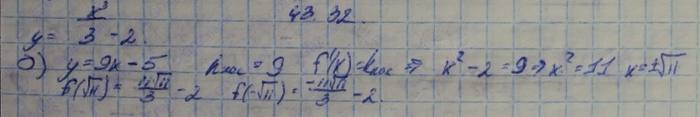 43.32.
y = x³/3 - 2.
б) y = 9x - 5 kкос = 9 f'(x) = kкос ⇒ x² - 2 = 9 ⇒ x² = 11 x = ±√11
f(√11) = 11√11/3 - 2 f(-√11) = -11√11/3 - 2.